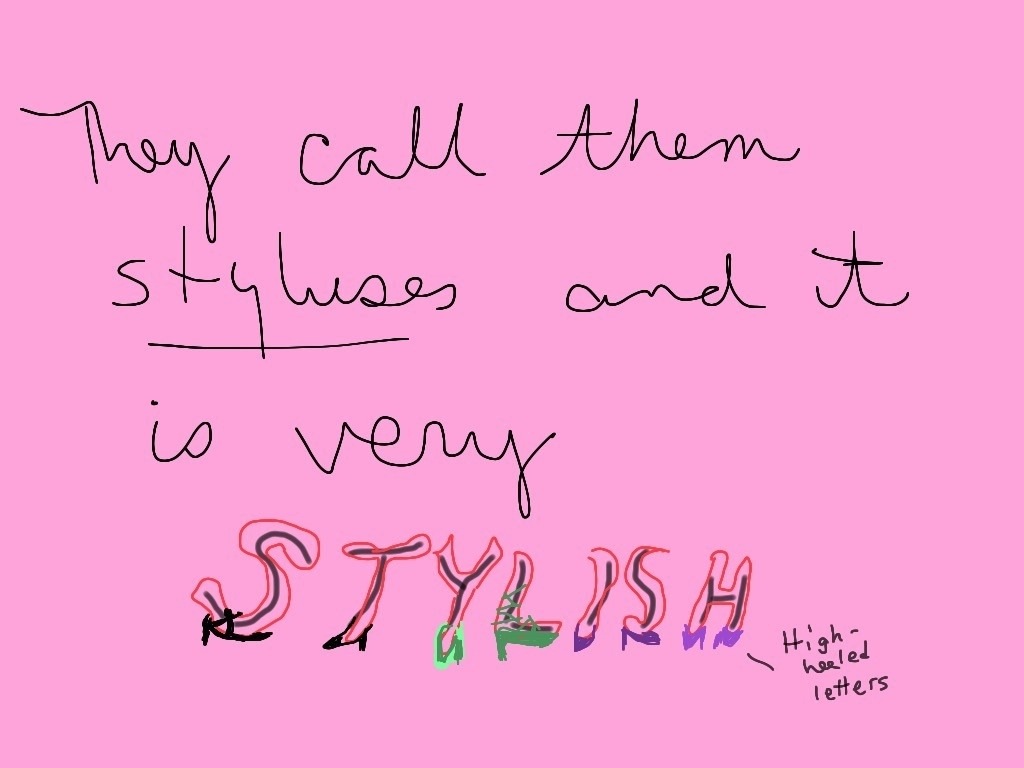 They call them
styluses and it
is very
STYLISH
High-
heeled
letters